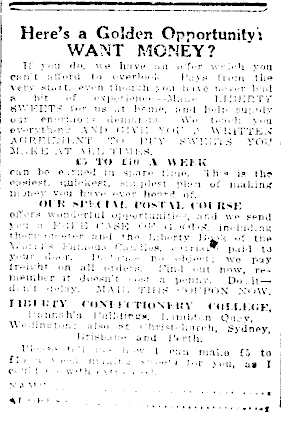 Here's a Golden Opportunity!
WANT MONEY?
If you do, we have an offer which you
can't afford to overlook. Pays from the
very start, even though you have never had
a bit of experience—Make LIBERTY
SWEETS for us at home, and help supply
our enormous demands. We teach you
everything AND GIVE YOU A WRITTEN
AGREEMENT TO BUY SWEETS YOU
MAKE AT ALL TIMES.
£5 TO £10 A WEEK
can be earned in spare time. This is the
easiest, quickest, surest plan of making
money you have ever heard of.
OUR SPECIAL POSTAL COURSE
offers wonderful opportunities, and we send
you a FREE CASE OF Goods, including
thermometer and the Liberty Book of the
World's Famous Candies, carriage paid to
your door. Distance no object; we pay
freight on all orders. Find out now, re-
member it doesn't cost a penny. Do it—
don't delay. MAIL THIS COUPON NOW.
LIBERTY CONFECTIONERY COLLEGE,
Hannah's Buildings, Lambton Quay,
Wellington; also at Christchurch, Sydney,
Brisbane and Perth.
Please tell me how I can make £5 to
£10 a week making sweets for you, as I
could do with extra cash.
NAME
ADDRESS